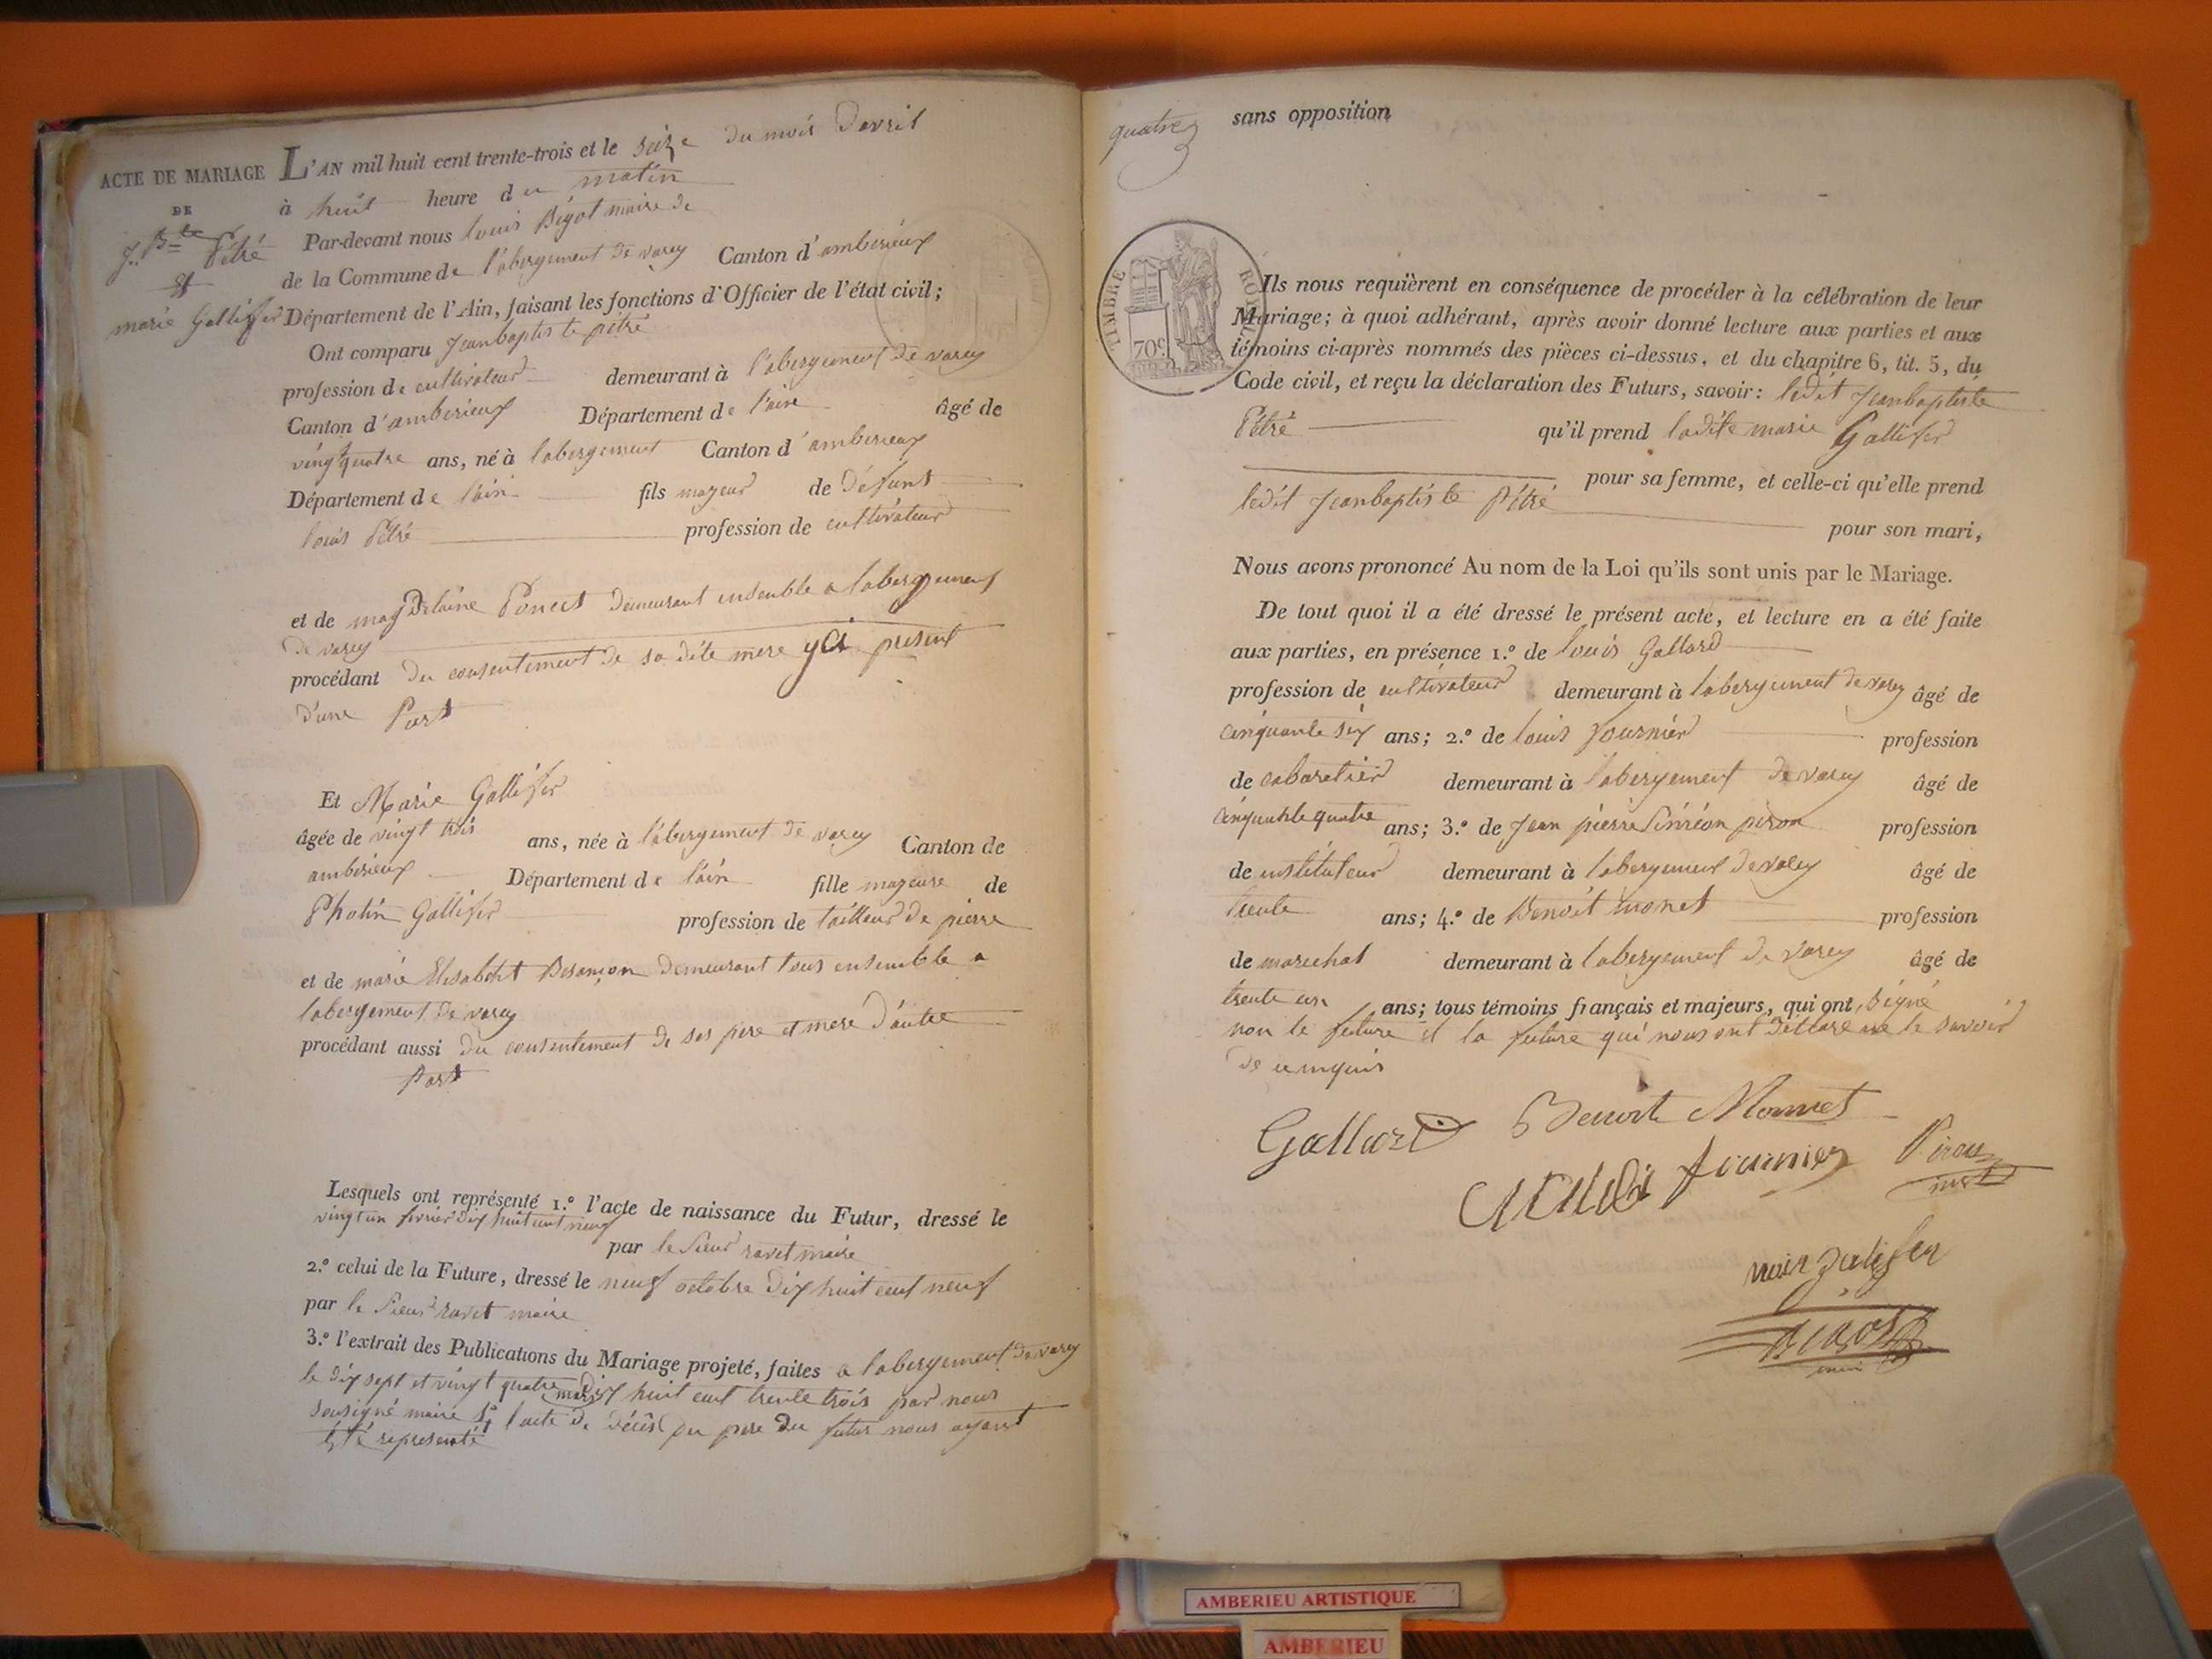 ACTE DE MARIAGE
DE
J. Bte Pétré
et
marie Gallifer
L'AN mil huit cent trente-trois et le seize du mois d'avril
à huit heure du matin
Par-devant nous louis Bigot maire de
de la Commune de l'abergement de varey Canton d'ambérieux
Département de l'Ain, faisant les fonctions d'Officier de l'état civil;
Ont comparu Jeanbaptiste pétré
profession de cultivateur demeurant à l'abergement de varey
Canton d'amberieux Département de l'ain âgé de
vingt quatre ans, né à labergement Canton d'amberieux
Département de l'ain fils mageur de défunt
louis Pétré profession de cultivateur
et de magdelaine Poncet demeurant ensemble a labergement
de varey
procédant du consentement de sa dite mere yci present
d'une Part
Et Marie Gallifer
âgée de vingt trois ans, née à l'abergement de varey Canton de
amberieux Département de l'ain fille mageure de
Photin Gallifer profession de tailleur de pierre
et de marie Elisabeht Besançon demeurant tous ensemble a
labergement de varey
procédant aussi du consentement de ses pere et mere d'autre
Part
Lesquels ont représenté 1.º l'acte de naissance du Futur, dressé le
vingt un fevrier dix huit cent neuf
par le Sieur ravet maire
2.º celui de la Future, dressé le neuf octobre dix huit cent neuf
par le Sieur ravet maire
3.º l'extrait des Publications du Mariage projeté, faites a labergement de varey
le dix sept et vingt quatre mars dix huit cent trente trois par nous
sousigné maire l'acte de décés du pere du futur nous ayant
été representé
quatre
sans opposition
TIMBRE ROYAL
70c
Ils nous requièrent en conséquence de procéder à la célébration de leur
Mariage; à quoi adhérant, après avoir donné lecture aux parties et aux
témoins ci-après nommés des pièces ci-dessus, et du chapitre 6, tit. 5, du
Code civil, et reçu la déclaration des Futurs, savoir: ledit Jeanbaptiste
Pétré qu'il prend ladite marie Gallifer
pour sa femme, et celle-ci qu'elle prend
ledit Jeanbaptiste Pétré
pour son mari,
Nous avons prononcé Au nom de la Loi qu'ils sont unis par le Mariage.
De tout quoi il a été dressé le présent acte, et lecture en a été faite
aux parties, en présence 1.º de louis Gallard
profession de cultivateur demeurant à labergement de varey âgé de
cinquante six ans; 2.º de louis fournier profession
de cabaretier demeurant à l'abergement de varey âgé de
cinquante quatre ans; 3.º de Jean pierre Siméon piron profession
de instituteur demeurant à labergement de varey âgé de
trente ans; 4.º de Benoit monet profession
de marechal demeurant à labergement de varey âgé de
trente un ans; tous témoins français et majeurs, qui ont signé
non le future et la future qui nous ont déclaré ne le savoir
de ce enquis
Gallard Benoit Monnet
fournier Piron
inst
Bigot
maire
AMBERIEU ARTISTIQUE
AMBERIEU